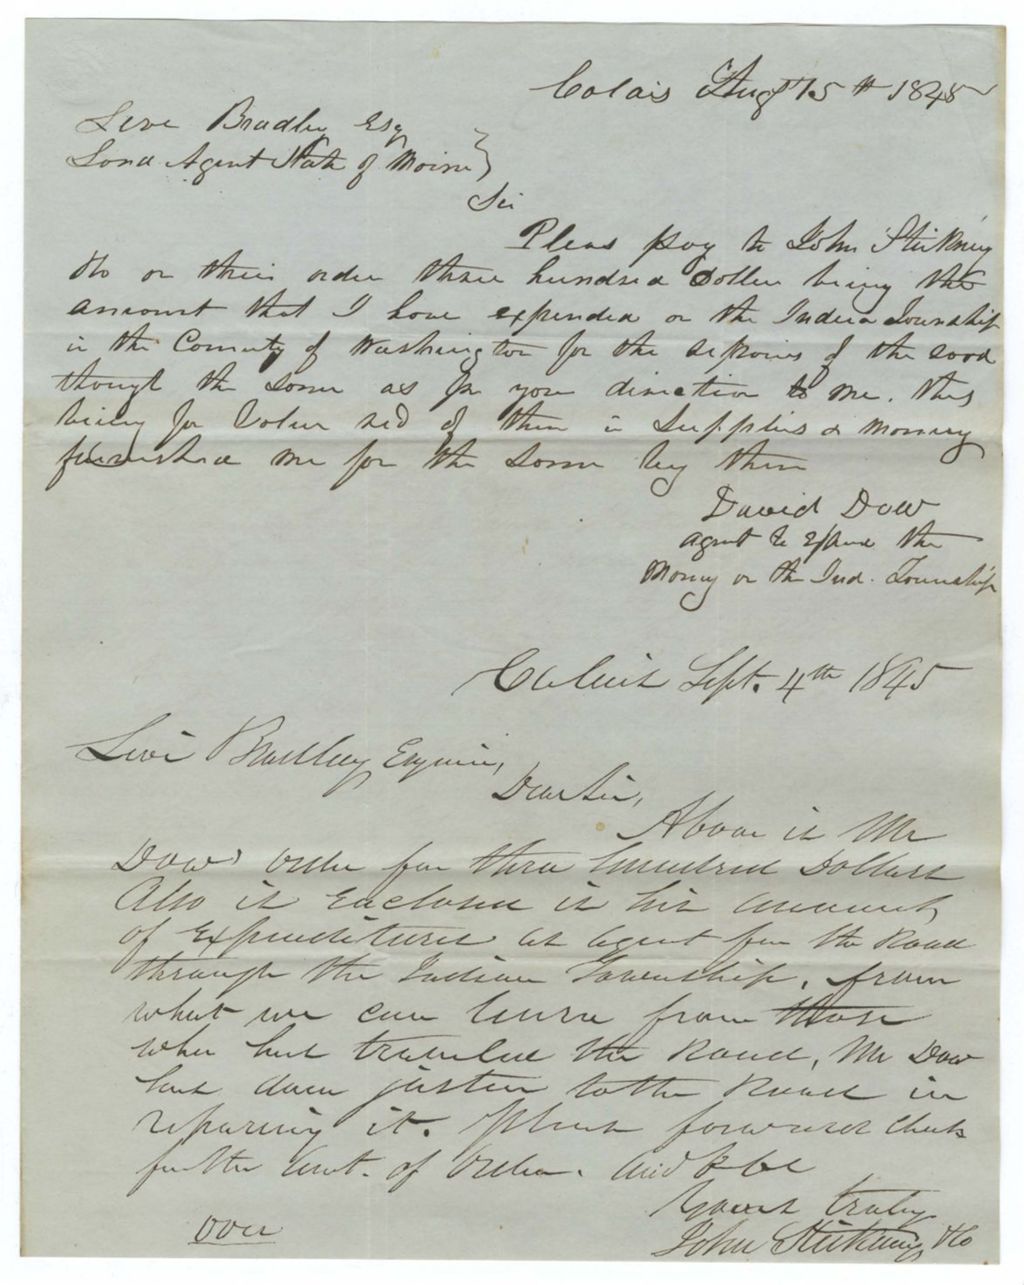 Calais Augt 15th 1845
Levi Bradley Esq
Land Agent State of Maine }
Sir
Pleas pay to John Stickney
& Co or their order three hundred Dollars being the
amount that I have expended on the Indian Township
in the County of Washington for the repairs of the road
though the same as pr your direction to me. this
being for Value red of them in Supplies & Money
furnished me for the same by them
David Dow
agent to Expend the
Money on the Ind. Township
Calais Sept. 4th 1845
Levi Bradley Esquire,
Dear Sir,
Above is Mr
Dows order for three hundred Dollars
Also is Enclosed is his account
of Expenditures as agent for the Road
through the Indian Township, from
what we can learn from those
who has travelled the Road, Mr Dow
has done justice to the Road in
repairing it. Please forward check
for the amt. of order. and be
Yours truly
over
John Stickney & Co